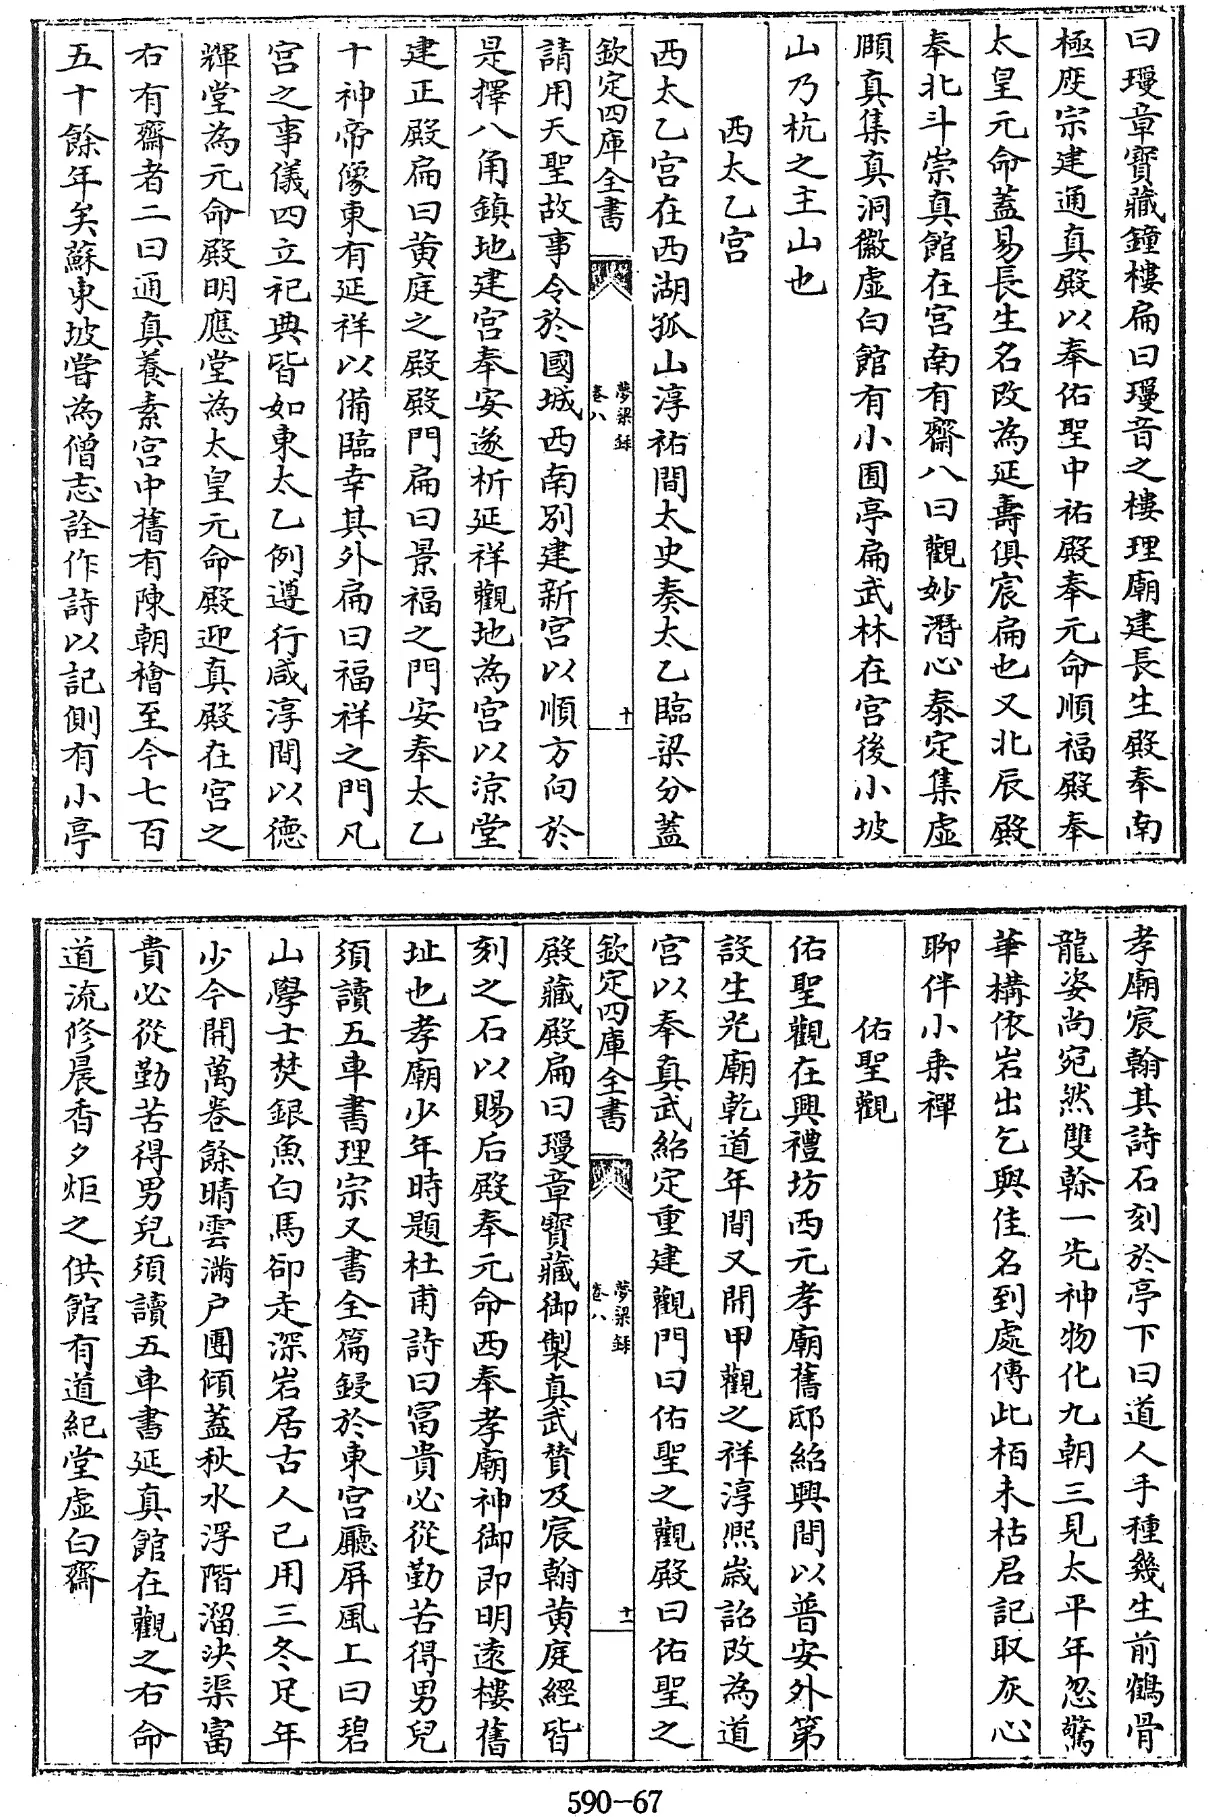 曰瓊章寳藏鐘樓扁曰瓊音之樓理廟建長生殿奉南
極度宗建通真殿以奉佑聖中祐殿奉元命順福殿奉
太皇元命蓋易長生名改為延壽俱宸扁也又北辰殿
奉北斗崇真館在宮南有齋八曰觀妙潛心泰定集虛
頤真集真洞徽虛白館有小圃亭扁武林在宮後小坡
山乃杭之主山也
西太乙宮
西太乙宮在西湖孤山淳祐間太史奏太乙臨梁分蓋
欽定四庫全書
夢粱録
卷八
十
請用天聖故事令於國城西南别建新宮以順方向於
是擇八角鎮地建宮奉安遂析延祥觀地為宮以涼堂
建正殿扁曰黄庭之殿殿門扁曰景福之門安奉太乙
十神帝像東有延祥以備臨幸其外扁曰福祥之門凡
宮之事儀四立祀典皆如東太乙例遵行咸淳間以德
輝堂為元命殿明應堂為太皇元命殿迎真殿在宮之
右有齋者二曰通真養素宮中舊有陳朝檜至今七百
五十餘年矣蘇東坡嘗為僧志詮作詩以記側有小亭
孝廟宸翰其詩石刻於亭下曰道人手種幾生前鶴骨
龍姿尚宛然雙榦一先神物化九朝三見太平年忽驚
華構依岩出乞與佳名到處傳此栢未枯君記取灰心
聊伴小乗禪
佑聖觀
佑聖觀在興禮坊西元孝廟舊邸紹興間以普安外第
設生光廟乾道年間又開甲觀之祥淳熙歲詔改為道
宮以奉真武紹定重建觀門曰佑聖之觀殿曰佑聖之
欽定四庫全書
夢粱録
卷八
十一
殿藏殿扁曰瓊章寳藏御製真武賛及宸翰黄庭經皆
刻之石以賜后殿奉元命西奉孝廟神御即明逺樓舊
址也孝廟少年時題杜甫詩曰富貴必從勤苦得男兒
須讀五車書理宗又書全篇鋟於東宮廳屏風上曰碧
山學士焚銀魚白馬卻走深岩居古人已用三冬足年
少今開萬卷餘晴雲滿户團傾蓋秋水浮階溜決渠富
貴必從勤苦得男兒須讀五車書延真館在觀之右命
道流修晨香夕炬之供館有道紀堂虛白齋
590-67